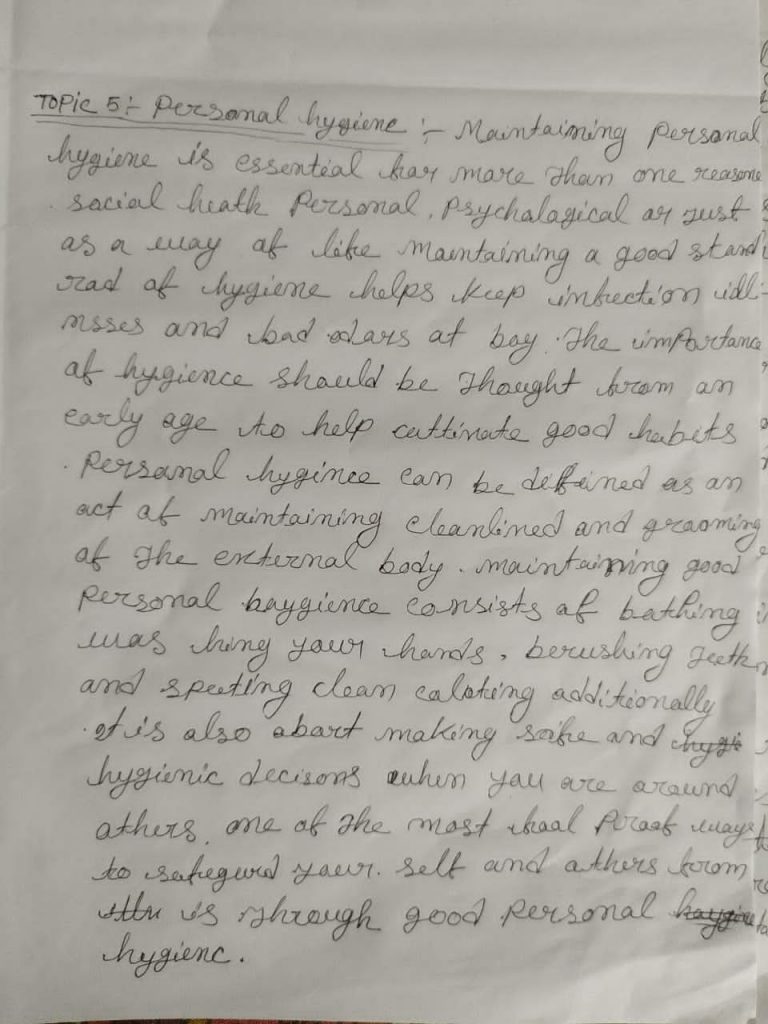 Topic 5:- Personal hygiene :- Maintaining Personal
hygiene is essential for more than one reasone
. social heath Personal, Psychalogical or Just
as a way of life maintaining a good stand
rad of hygiene helps keep infection idll-
nsses and bad odars at bay. The importance
of hygience should be Thought from an
early age to help cuttinate good habits
. Personal hygince can be defeined as an
act of maintaining cleanlined and grooming
of The external body. maintaining good
Personal haygience consists of bathing
was hing your hands, berushing Jeeth
and speeting clean caloting additionally
. It is also abart making saife and
hygienic decisons when you are around
others, one of The most fool Proof ways
to safegurd your. self and others from
is Through good Personal
hygienc.